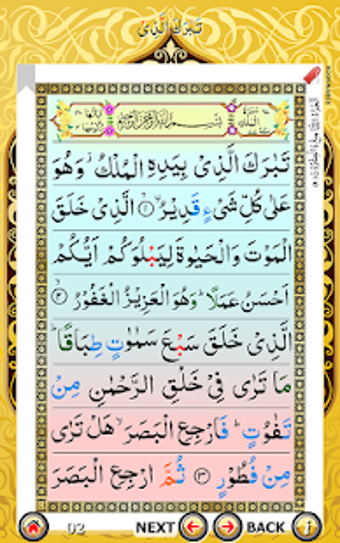 تَبٰرَكَ الَّذِىْ
سورة الملك
بِسْمِ اللّٰهِ الرَّحْمٰنِ الرَّحِيْمِ
تَبٰرَكَ الَّذِىْ بِيَدِهِ الْمُلْكُ ؗ وَهُوَ
عَلٰى كُلِّ شَىْءٍ قَدِيْرُ ۙ﴿۱﴾ الَّذِىْ خَلَقَ
الْمَوْتَ وَالْحَيٰوةَ لِيَبْلُوَكُمْ اَيُّكُمْ
اَحْسَنُ عَمَلًا ؕ وَهُوَ الْعَزِيْزُ الْغَفُوْرُ ۙ﴿۲﴾
الَّذِىْ خَلَقَ سَبْعَ سَمٰوٰتٍ طِبَاقًا ؕ
مَا تَرٰى فِىْ خَلْقِ الرَّحْمٰنِ مِنْ
تَفٰوُتٍ ؕ فَارْجِعِ الْبَصَرَ ۙ هَلْ تَرٰى
مِنْ فُطُوْرٍ ﴿۳﴾ ثُمَّ ارْجِعِ الْبَصَرَ
02 NEXT BACK